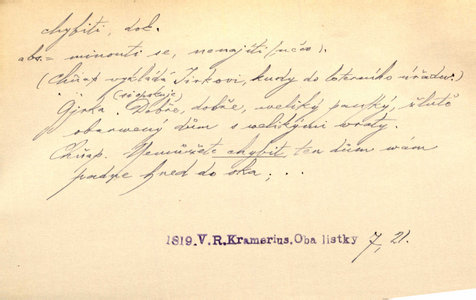 chybiti, dok.
abs. = minouti se, nenajíti (něco).
(Chňap vykládá Jirkovi, kudy do loterního úřadu.)
Girka. Dobře, dobře, veliký panský, žlutě
obarwený dům s welikými wraty.
Chňap. Nemůžete chybit, ten dům wám
padne hned do oka; . .
1819. V.R.Kramerius. Oba listky 7, 21.